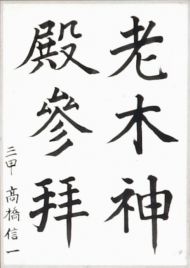 老木神
殿參拜
三甲 高橋信一